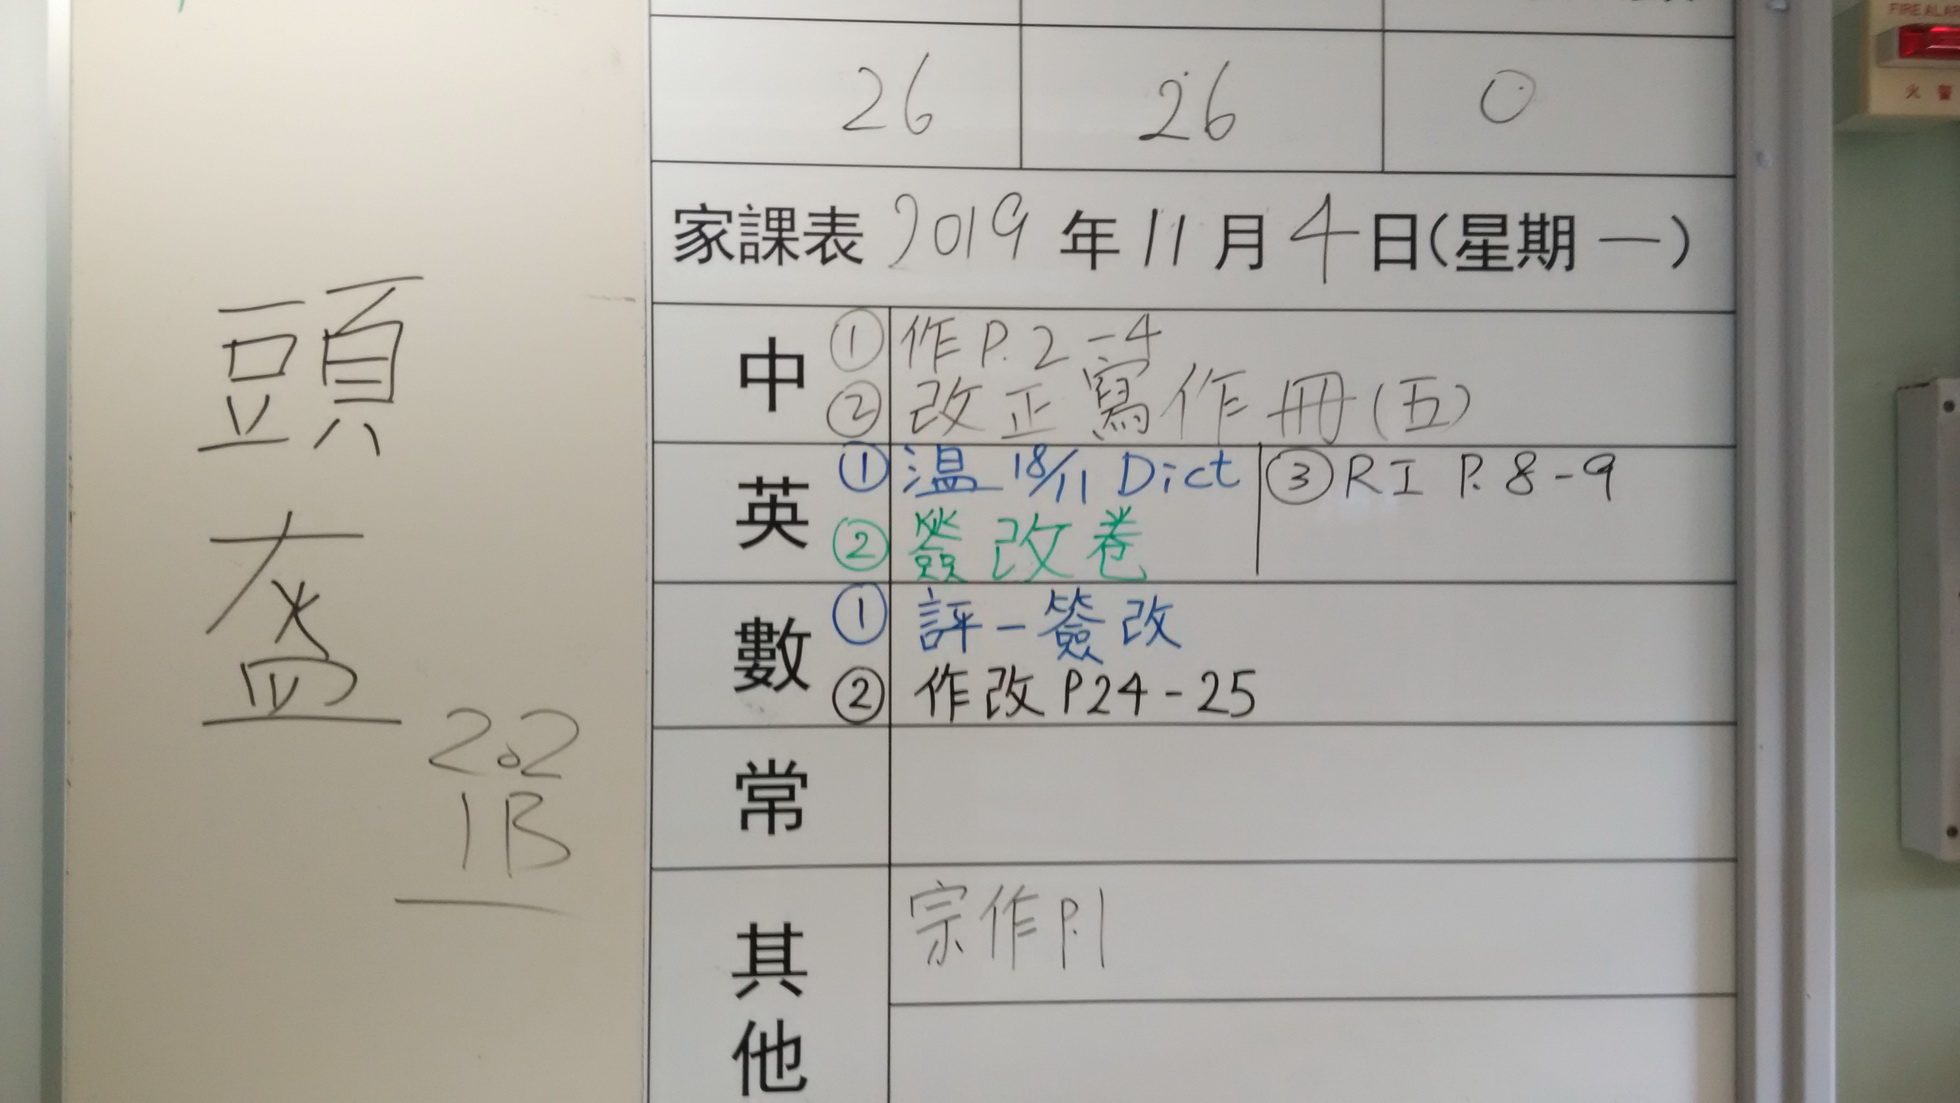 26 26 0
家課表 2019 年 11 月 4 日(星期一)
中 ① 作P.2-4
② 改正寫作冊(五)
英 ① 温 18/11 Dict ③ RI P.8-9
② 簽改卷
數 ① 評一簽改
② 作改P24-25
常
其他 宗作P.1
頭
盔
2.2
1B
FIRE ALAR
火警